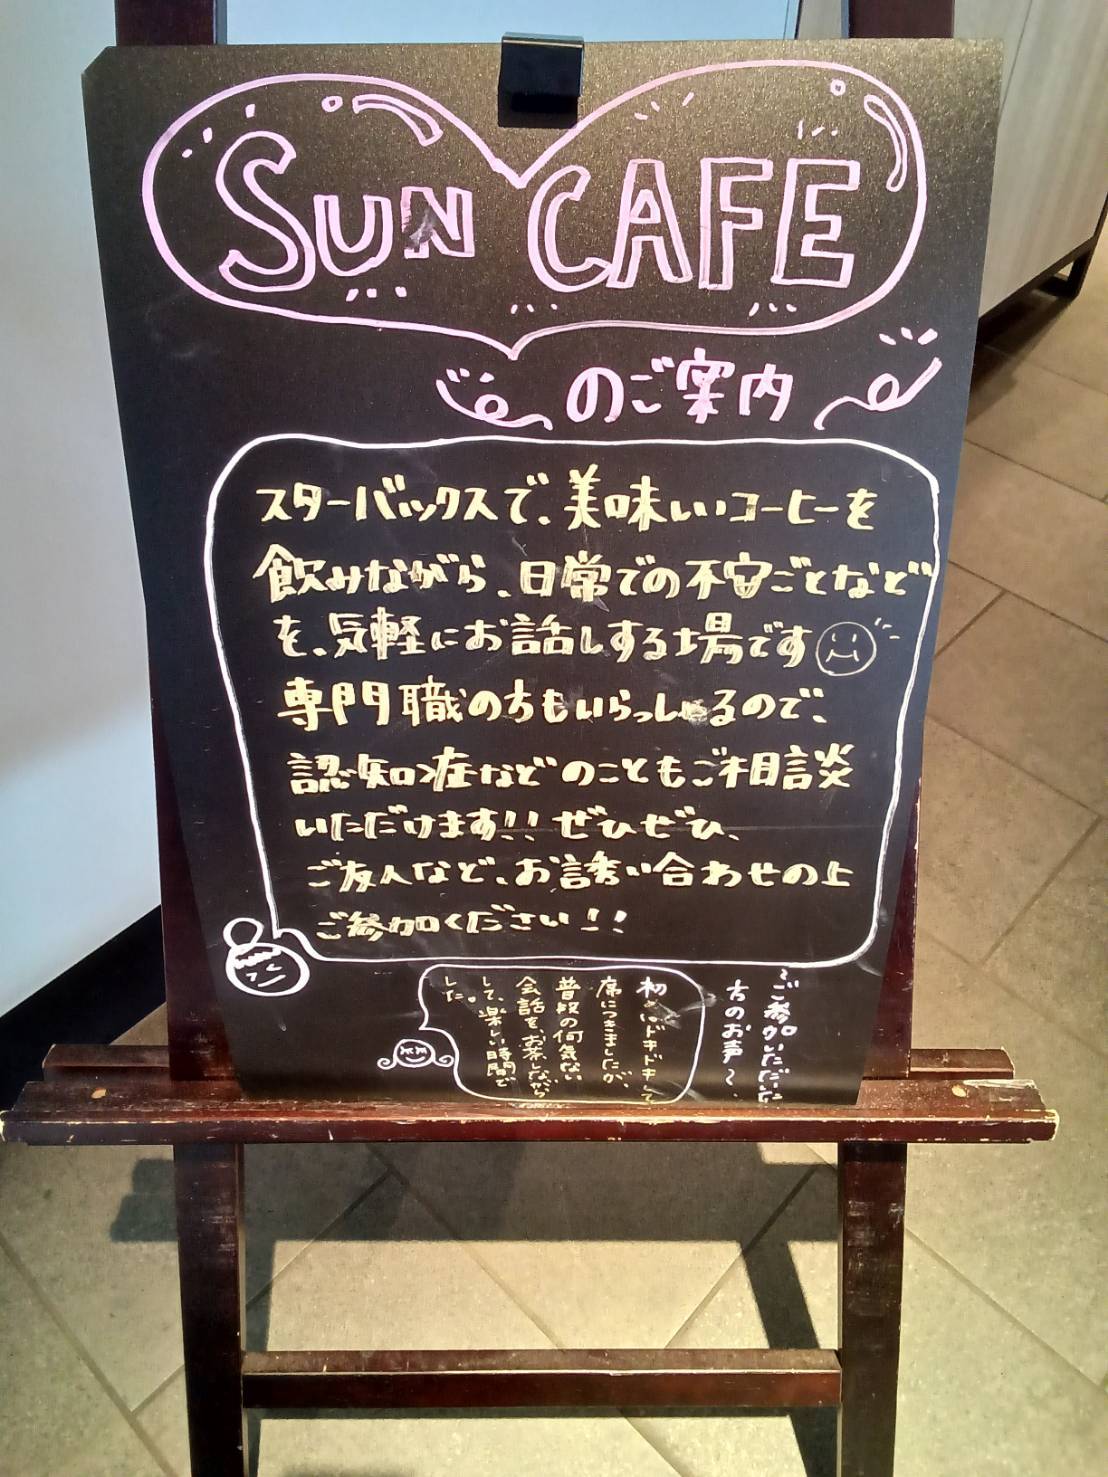 SUN CAFE
のご案内
スターバックスで、美味しいコーヒーを
飲みながら、日常での不安ごとなど
を、気軽にお話しする場です
専門職の方もいらっしゃるので、
認知症などのこともご相談
いただけます!! ぜひぜひ、
ご友人など、お誘い合わせの上
ご参加ください!!
〜ご参加いただいた
方のお声〜
初めはドキドキして
席につきましたが、
普段の何気ない
会話を、お茶しながら
して、楽しい時間で
した。